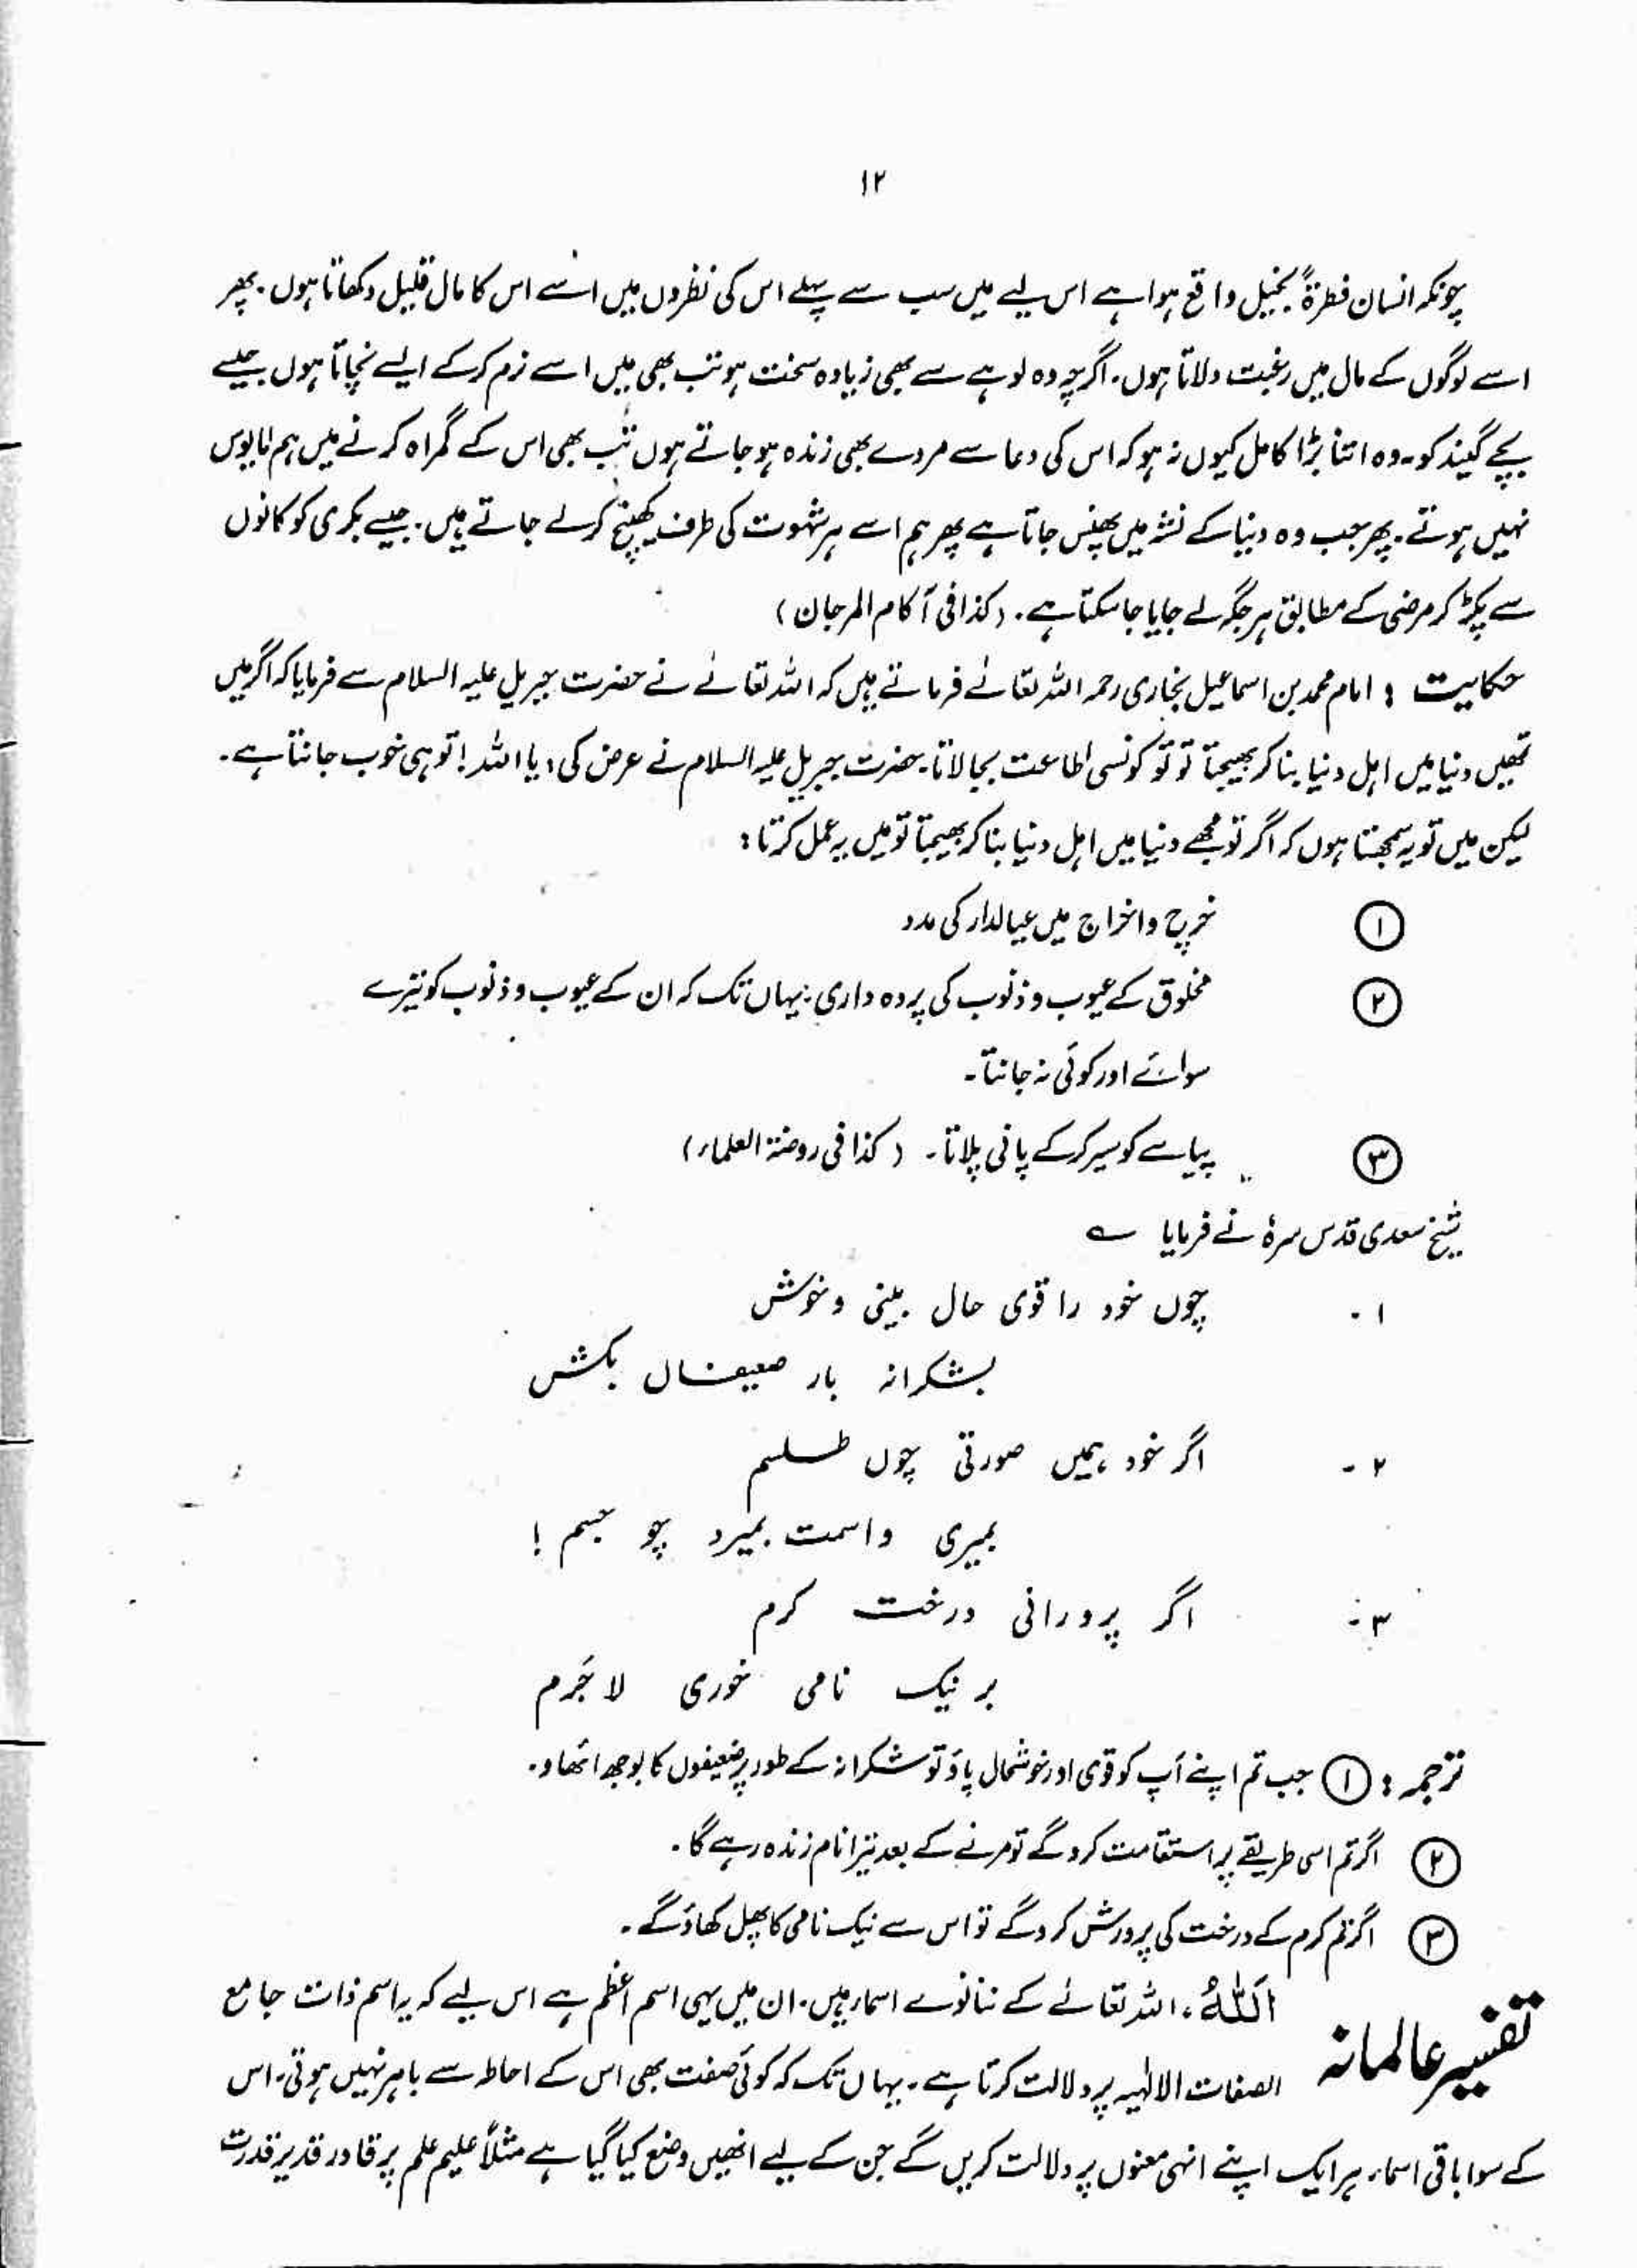 ۱۲
چونکہ انسان فطرۃً بخیل واقع ہوا ہے اس لیے میں سب سے پہلے اس کی نظروں میں اسے اس کا مال قلیل دکھاتا ہوں۔ پھر
اسے لوگوں کے مال میں رغبت دلاتا ہوں۔ اگرچہ وہ لوہے سے بھی زیادہ سخت ہو تب بھی میں اسے نرم کرکے ایسے نچاتا ہوں جیسے
بچے گیند کو۔ وہ اتنا بڑا کامل کیوں نہ ہو کہ اس کی دعا سے مردے بھی زندہ ہو جاتے ہوں تب بھی اس کے گمراہ کرنے میں ہم مایوس
نہیں ہوتے۔ پھر جب وہ دنیا کے نشہ میں پھنس جاتا ہے پھر ہم اسے ہر شہوت کی طرف کھینچ کر لے جاتے ہیں۔ جیسے بکری کو کانوں
سے پکڑ کر مرضی کے مطابق ہر جگہ لے جایا جا سکتا ہے۔ (کذا فی آکام المرجان)
حکایت : امام محمد بن اسماعیل بخاری رحمہ اللہ تعالیٰ فرماتے ہیں کہ اللہ تعالیٰ نے حضرت جبریل علیہ السلام سے فرمایا کہ اگر میں
تمھیں دنیا میں اہل دنیا بنا کر بھیجتا تو تُو کونسی اطاعت بجا لاتا۔ حضرت جبریل علیہ السلام نے عرض کی : یا اللہ! تو ہی خوب جانتا ہے۔
لیکن میں تو یہ سمجھتا ہوں کہ اگر تو مجھے دنیا میں اہل دنیا بنا کر بھیجتا تو میں یہ عمل کرتا :
① خرچ و اخراج میں عیالدار کی مدد
② مخلوق کے عیوب و ذنوب کی پردہ داری : یہاں تک کہ ان کے عیوب و ذنوب کو تیرے
سوائے اور کوئی نہ جانتا۔
③ پیاسے کو سیر کرکے پانی پلاتا۔ (کذا فی روضۃ العلماء)
شیخ سعدی قدس سرہٗ نے فرمایا ؎
۱۔ چوں خود را قوی حال بینی و خوش
بشکرانہ بار ضعیفاں بکش
۲۔ اگر خود ہمیں صورتی چوں طلسم
بمیری واسمت بمیرد چو جسم !
۳۔ اگر پرورانی درخت کرم
بر نیک نامی خوری لا جَرم
ترجمہ : ① جب تم اپنے آپ کو قوی اور خوشحال پاؤ تو شکرانہ کے طور پر ضعیفوں کا بوجھ اٹھاؤ۔
② اگر تم اسی طریقے پر استقامت کرو گے تو مرنے کے بعد تیرا نام زندہ رہے گا۔
③ اگر تم کرم کے درخت کی پرورش کرو گے تو اس سے نیک نامی کا پھل کھاؤ گے۔
تفسیر عالمانہ اَللّٰہُ ، اللہ تعالیٰ کے ننانوے اسماء ہیں۔ ان میں یہی اسم اعظم ہے اس لیے کہ یہ اسم ذات جامع
الصفات الالٰہیہ پر دلالت کرتا ہے۔ یہاں تک کہ کوئی صفت بھی اس کے احاطہ سے باہر نہیں ہوتی۔ اس
کے سوا باقی اسماء ہر ایک اپنے انہی معنوں پر دلالت کریں گے جن کے لیے انھیں وضع کیا گیا ہے مثلاً علیم علم پر قادر قدیر قدرت